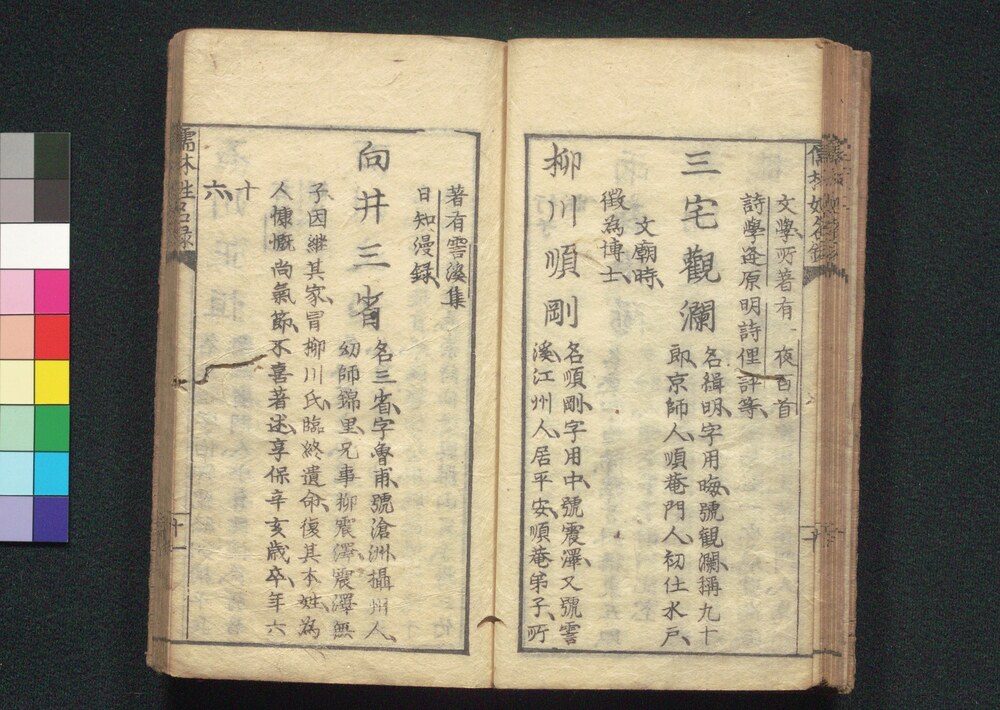 文學所著有 夜百首
詩學逢原明詩俚評等
三宅觀瀾
名緝明字用晦號観瀾稱九十
郎京師人順菴門人初仕水戸
文廟時
徴為博士
柳川順剛
名順剛字用中號震澤又號雲
溪江州人居平安順菴弟子所
著有雲溪集
日知漫録
向井三省
名三省字魯甫號滄洲攝州人
幼師錦里兄事柳震澤震澤無
子因継其家冒柳川氏臨終遺命復其本姓為
人慷慨尚氣節不喜著述享保辛亥歳卒年六
十六
儒林姓名録
十一